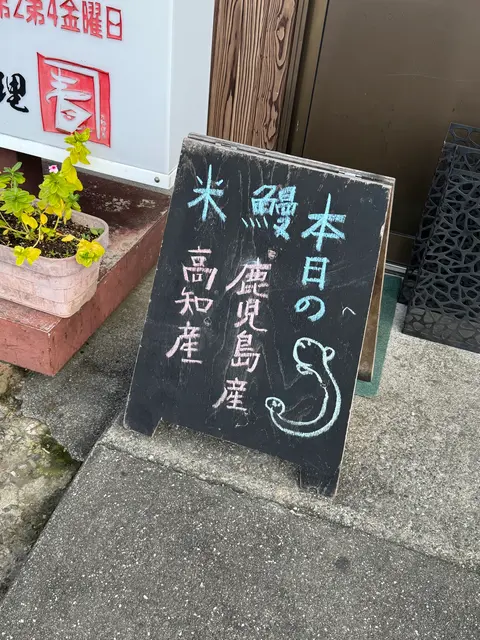 第2第4金曜日
理
本日の
鰻
鹿児島産
米
高知産